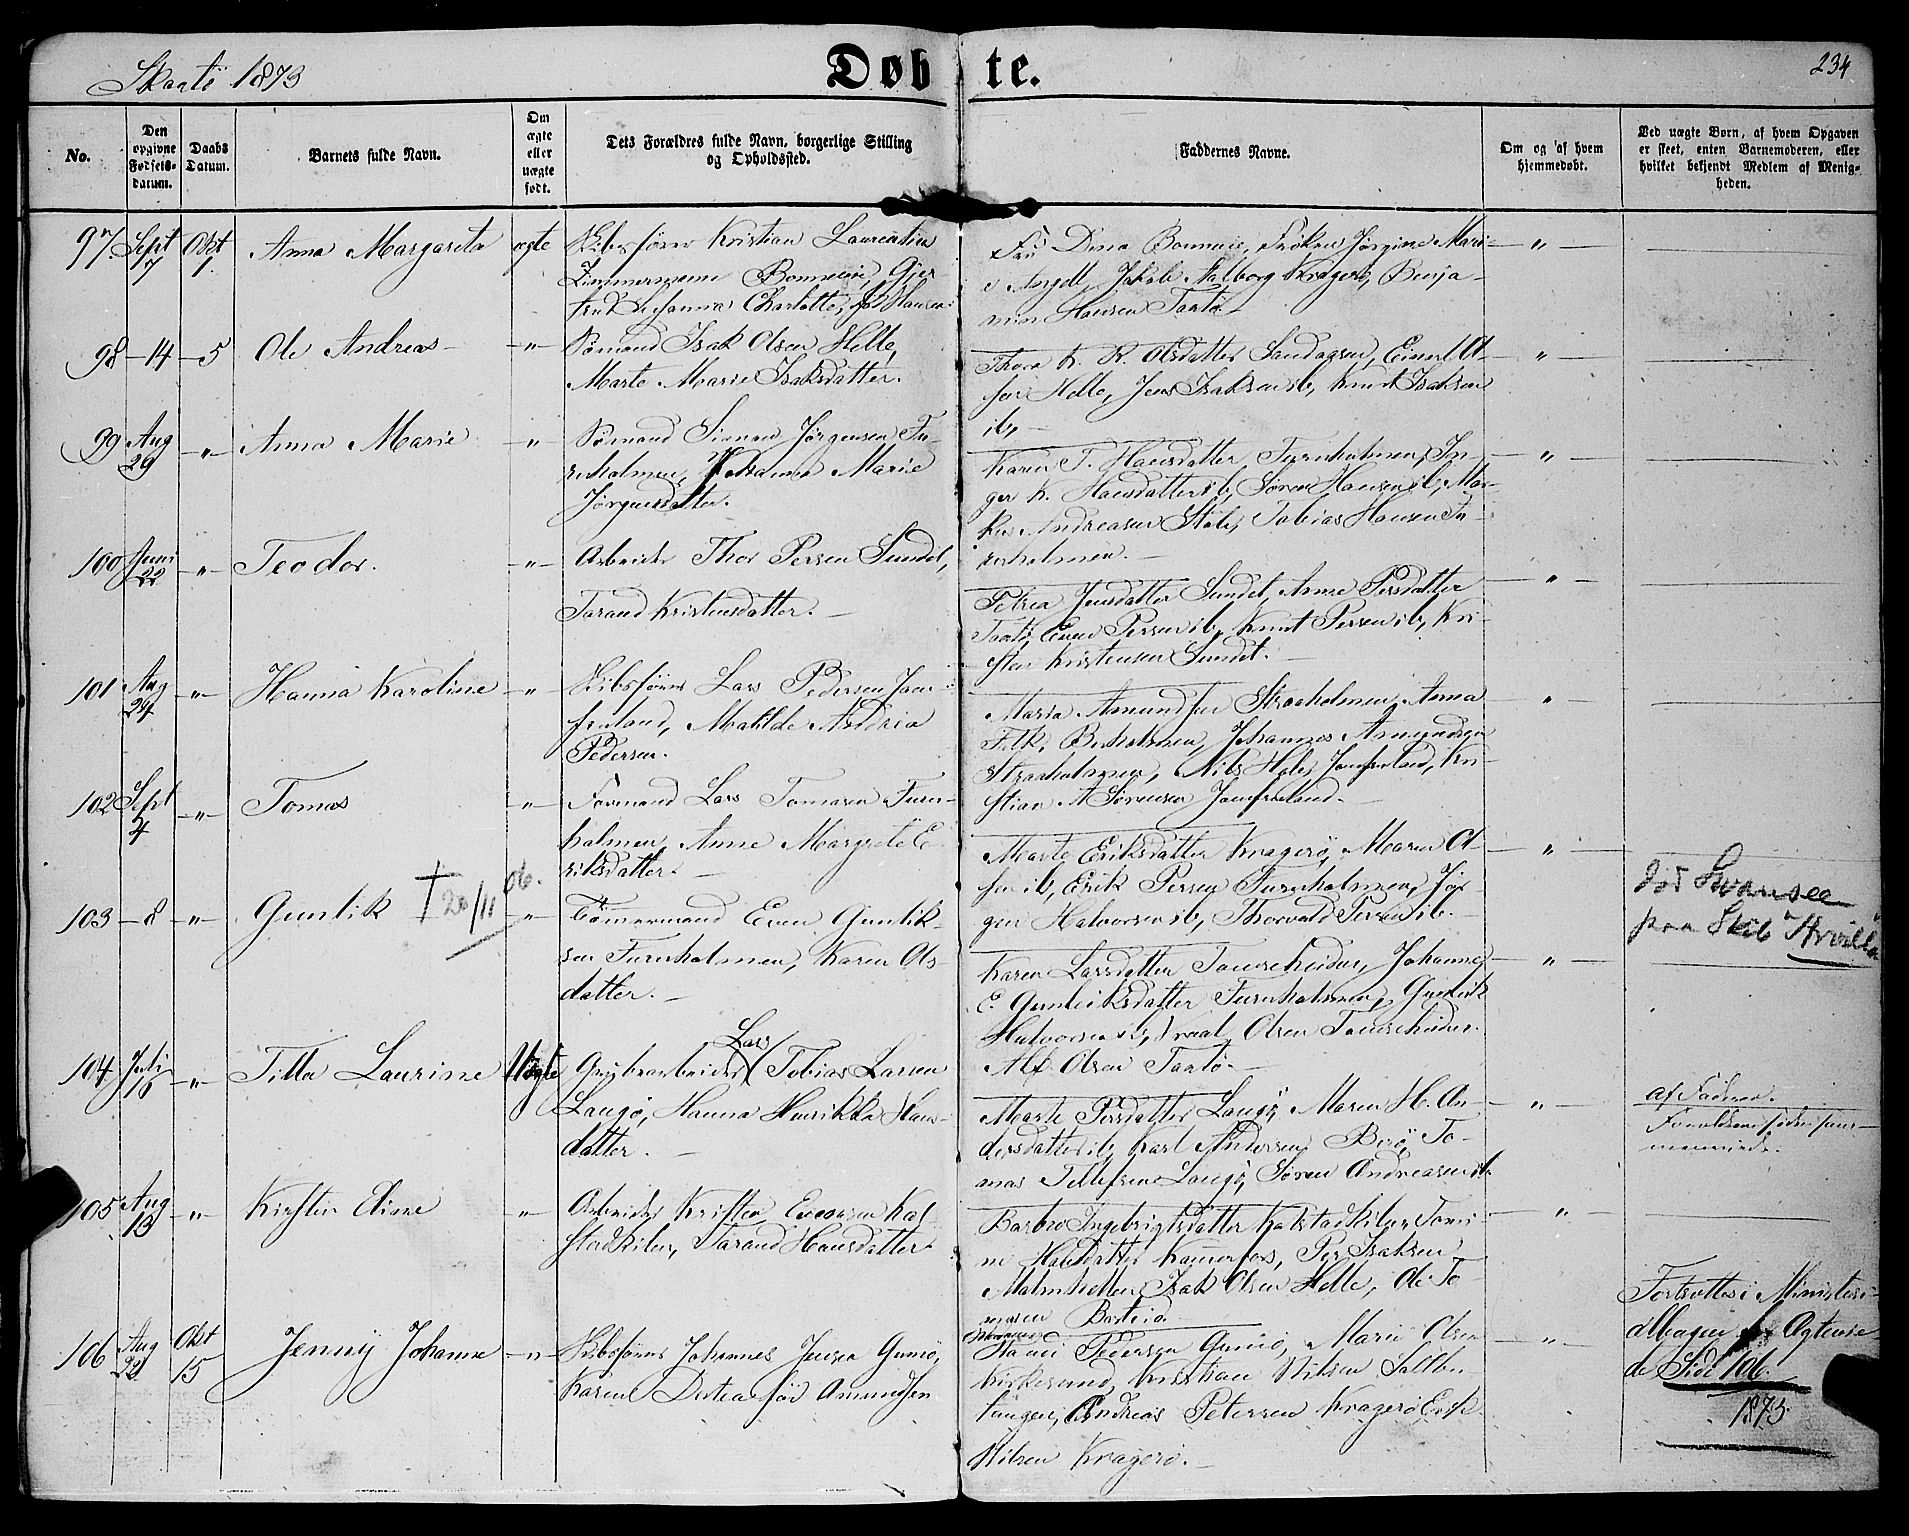 Skaatö 1873
Døbte.
234
No.
Den opgivne Fødsels-datum.
Daabs Datum.
Barnets fulde Navn.
Om ægte eller uægte født.
Dets Forældres fulde Navn, borgerlige Stilling og Opholdssted.
Faddernes Navne.
Om og af hvem hjemmedøbt.
Ved uægte Børn, af hvem Opgaven er skeet, enten Barnemoderen, eller hvilket bekjendt Medlem af Menig-heden.
97 Sept 7 Okt 1 Anna Margareta ægte
Skibsfører Kristian Laurentius
Zimmermann Bonnevie, Gjer-
trud Susanna Charlotte, f. Hansen
Fru Dina Bonnevie, Frøken Jørgine Mari-
e Angell, Jakob Aalborg Kragerø, Benja-
min Hansen Taatö
"
98 14 5 Ole Andreas "
Sømand Isak Olsen Helle,
Marte Marie Isaksdatter.
Thora K. R. Olsdatter, Einert Ol-
sen Helle, Jens Isaksen ib, Knut Isaksen
ib, —
"
99 Aug 29 " Anna Marie "
Sømand Simon Jörgensen Fu-
renholmen, Johanna Marie
Jörgensdatter.
Karen T. Hansdatter Furuholmen, In-
ger K. Hansdatter ib, Søren Hansen ib, Mar-
kus Andreasen Støle, Tobias Hansen Fu-
renholmen. —
"
100 Juni 22 " Teodor. "
Arbeider Thor Persen Sundet,
Tarand Kristensdatter. —
Petrea Jensdatter Sundet, Anne Persdatter
Taatö, Even Persen ib, Knut Persen ib, Kri-
sten Kristensen Sundet. —
"
101 Aug 24 " Hanna Karoline "
Skibsfører Lars Pedersen Jom-
fruland, Matilde Andrea
Pedersen.
Maria Amundsen Straaholmen, Anna
Falk, Johannes Amundsen
Straaholmen, Nils Hals, Jomfruland, Kri-
stian A Sörensen Jomfruland. —
"
102 Sept 4 " Tomas "
Formand Lars Tomasen Furu-
holmen, Anne Margrete E-
riksdatter. —
Marte Eriksdatter Kragerö, Maren Ol-
sen ib, Erik Persen Furuholmen, Jør-
gen Halvorsen ib, Thorvald Persen ib. —
"
103 8 " Gunlik † 20/11 06. "
Tömermand Even Gunlik-
sen Furuholmen, Karen Ols-
datter. —
Karen Larsdatter Taasekjeidar, Johanne
E. Gunleiksdatter Furuholmen, Gunleik
Halvorsen ib, Olsen
Alf Olsen Taatö —
"
død Swansea
paa Skib "
104 Juli 16 " Tilla Laurine Uægte
Grubearbeider Lars Tobias Larsen
Langø, Hanna Henrikka Hans-
datter. —
Marte Persdatter Langø, Maren H. An-
dersdatter ib, Karl Andersen Berö, To-
mas Tellefsen Langø, Søren Andreasen ib.
"
af Faderen.
105 Aug 13 " Kirsten Eline "
Arbeider Kristen Evensen Kal-
stadkilen, Tarand Hansdatter.
Barbro Ingebrigtsdatter Kalstadkilen, Tomi-
ne Halsdatter Kammerfos, Per Isaksen
Malmhellen, Isak Olsen Helle, Ole To-
resen
"
106 Aug 22 Okt 15 Jenny Johanne "
Skibsfører Johannes Jensen Gumö,
Karen Dortea fød Amundsen
Pedersen Gumö, Marie Olsen
Kirkesund, Kristian Nilsen Salthe-
tangen, Andreas Petersen Kragerø, Erik
Nilsen Kragerø. —
"
Fortsattes i Ministeri-
albogen for
Side 106.
1873.